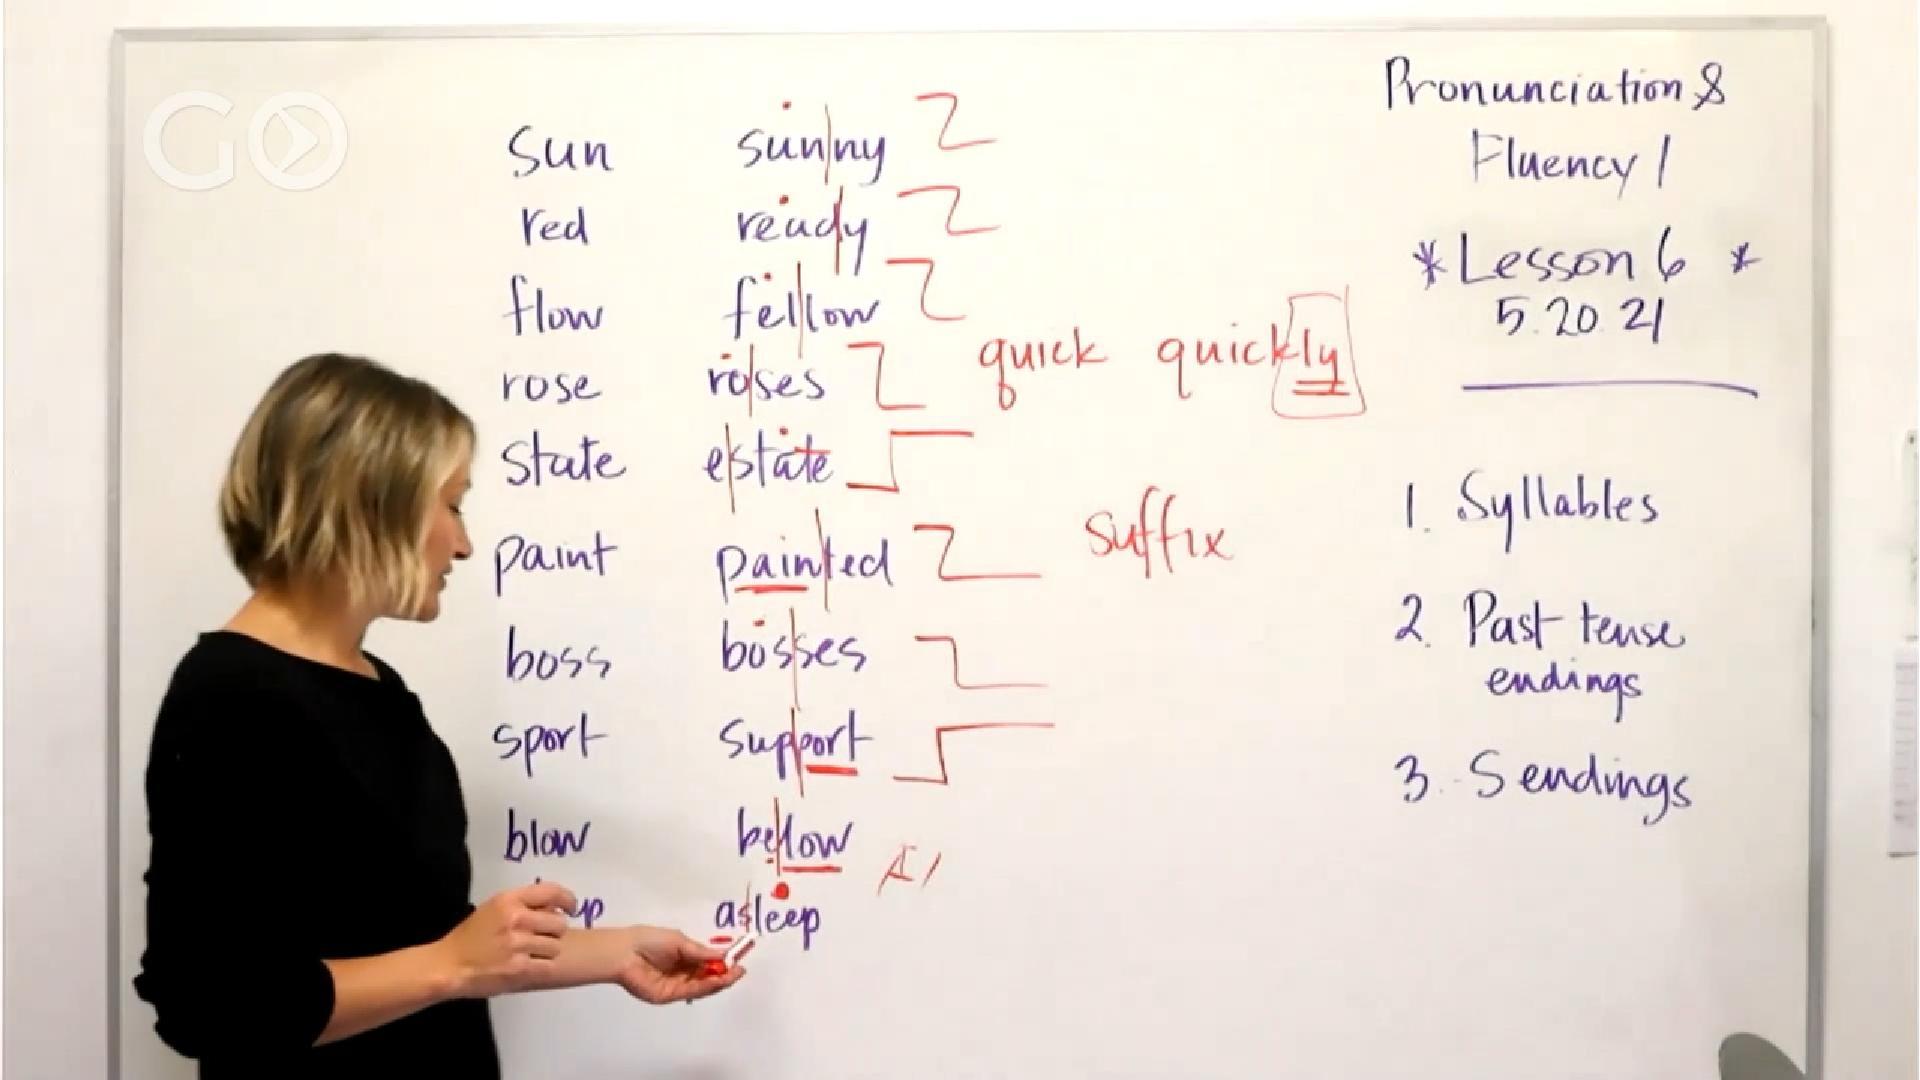 GO
Pronunciation &
Fluency 1
* Lesson 6 *
5.20.21
sun sunny
red ready
flow fellow
rose roses
quick quickly
state estate
paint painted
suffix
boss bosses
sport support
blow below
asleep
1. Syllables
2. Past tense
endings
3. S endings